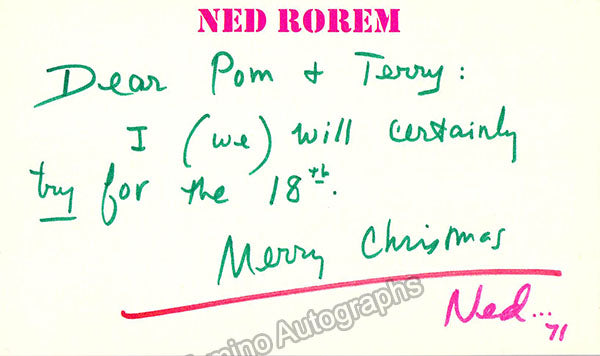 NED ROREM
Dear Pom & Terry:
I (we) will certainly
try for the 18th.
Merry Christmas
Ned... 71
mino Autographs